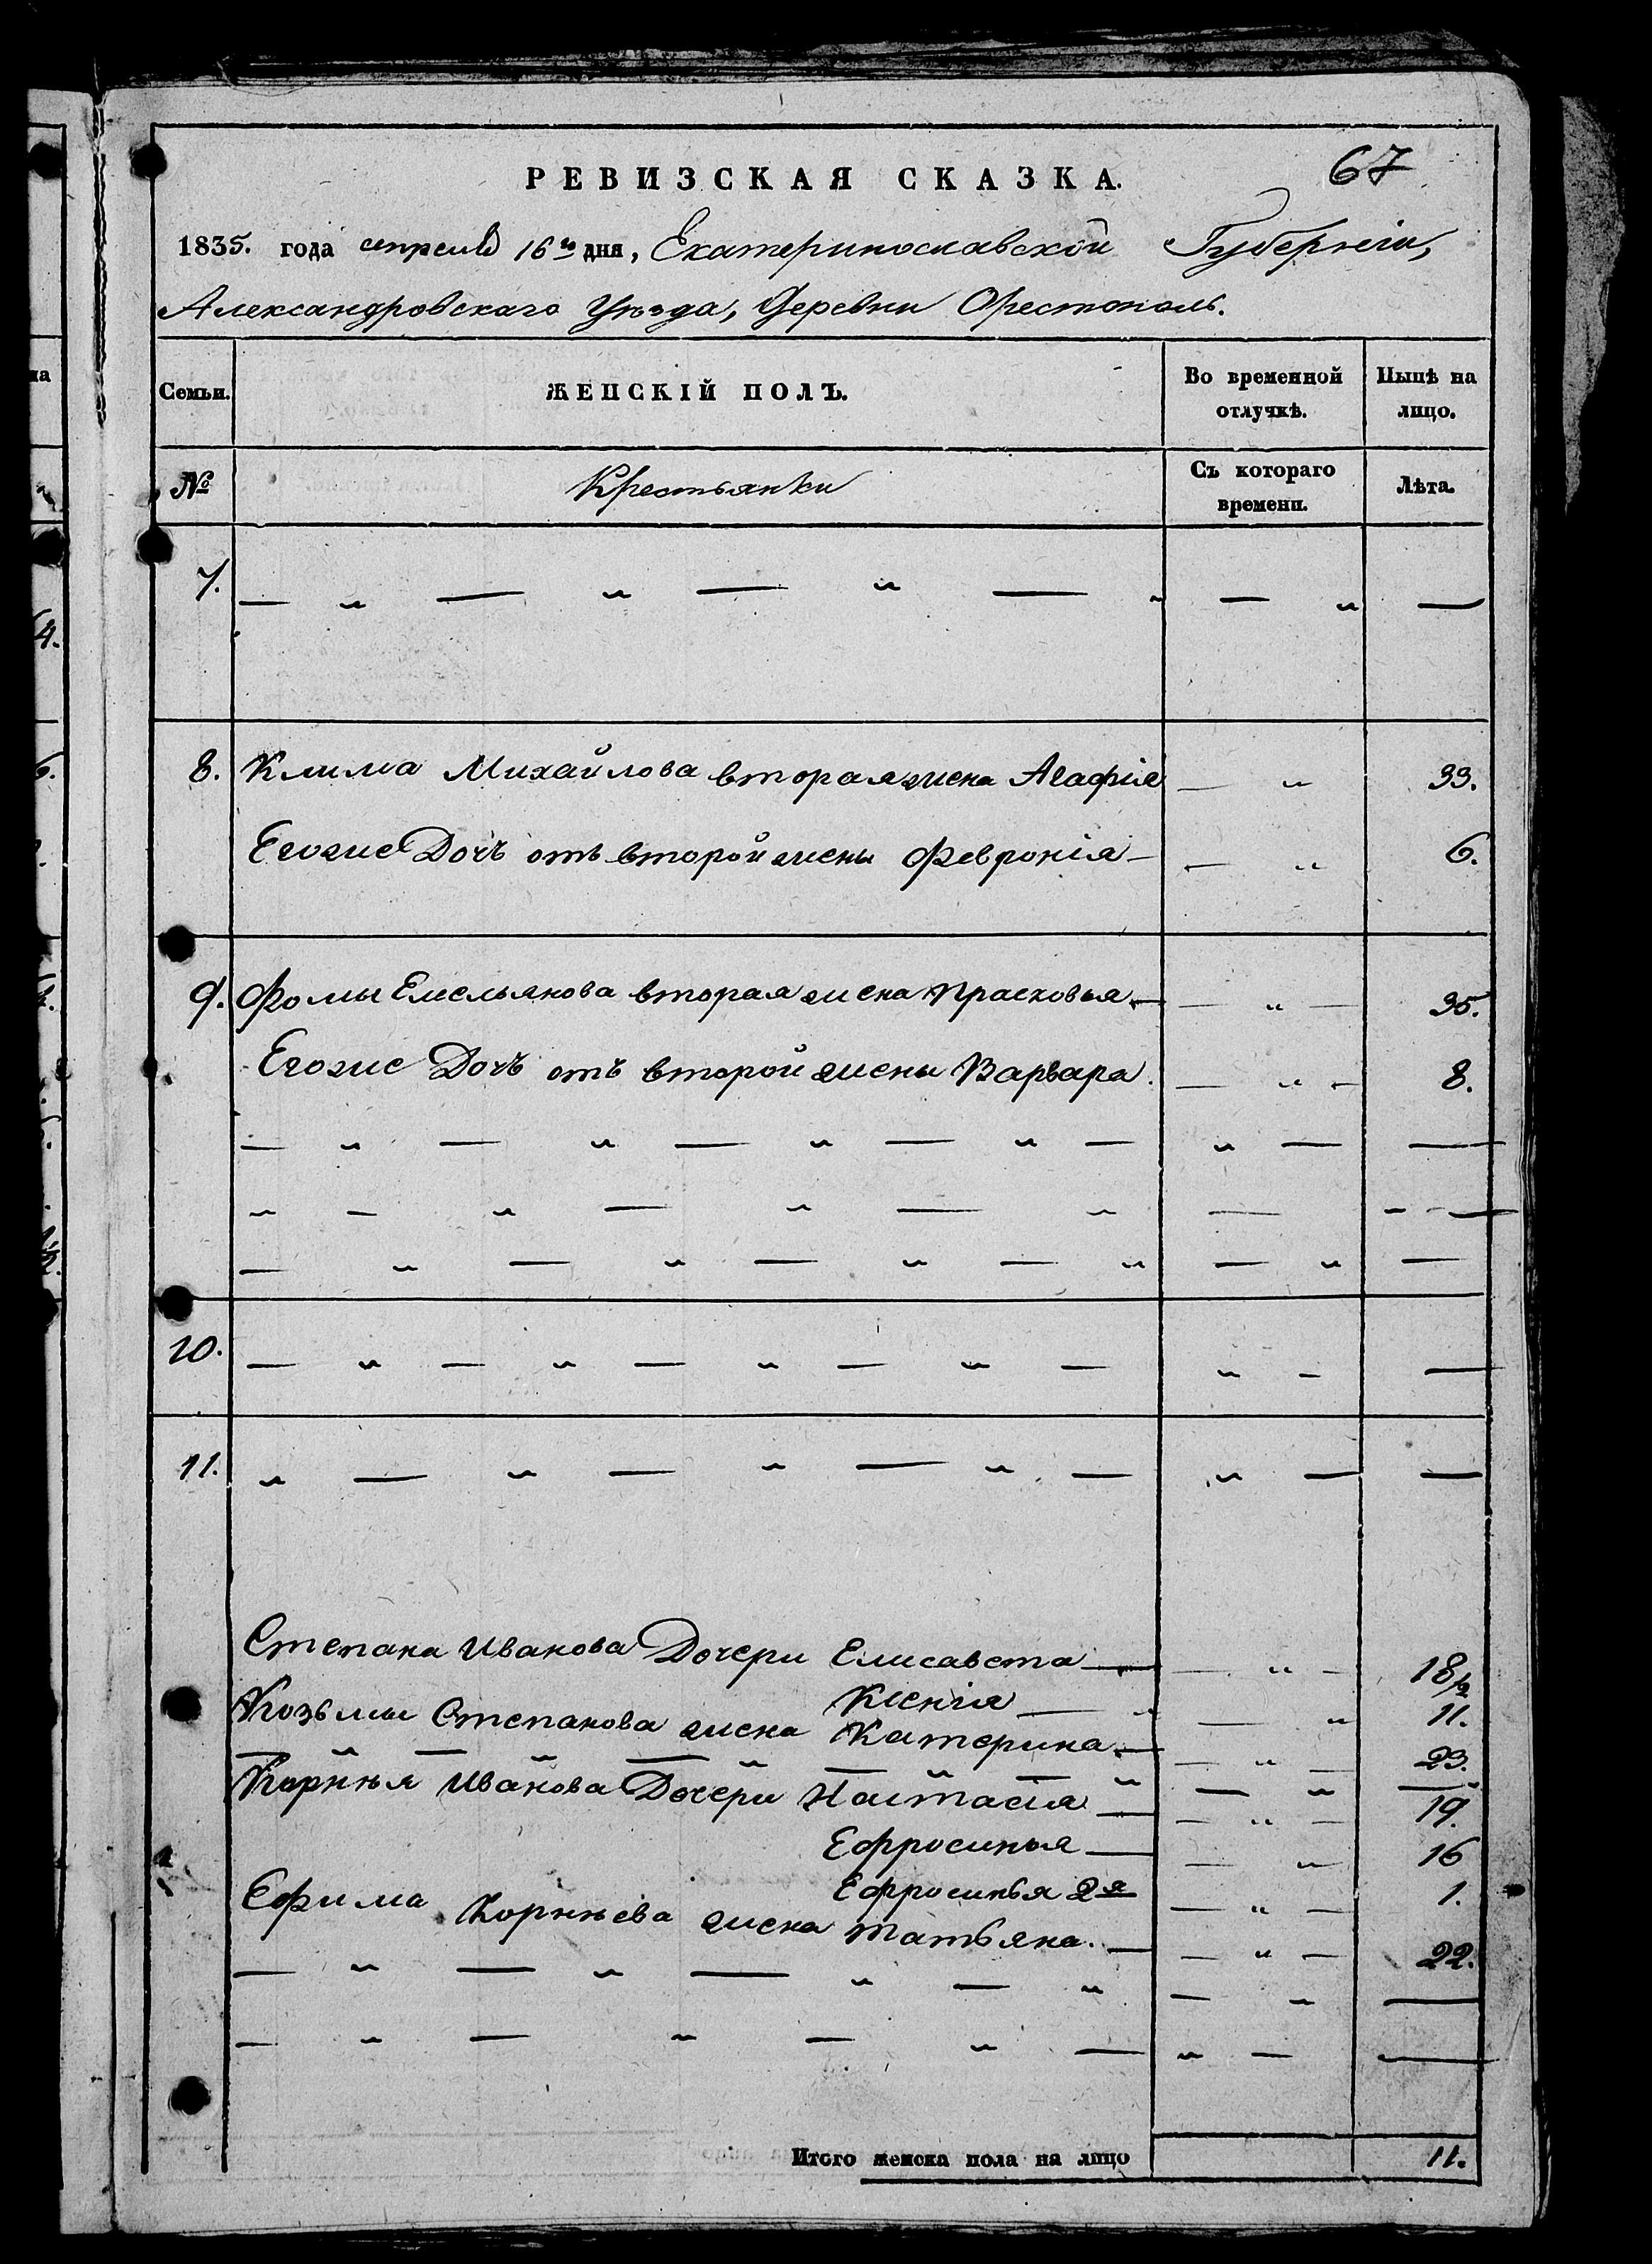 67
РЕВИЗСКАЯ СКАЗКА.
1835. года апреля 16го дня, Екатеринославской Губерніи,
Александровскаго Уѣзда, Деревни Орестополь.
Семьи. ЖЕНСКІЙ ПОЛЪ. Во временной отлучкѣ. Нынѣ на лицо.
№ Крестьянки Съ котораго времени. Лѣта.
7. — „ — „ — „ — „ — „ —
8. Клима Михайлова вторая жена Агафія — „ 33.
Егоже Дочь отъ второй жены Февронія — — „ 6.
9. Фомы Емельянова вторая жена Прасковья — — „ — 35.
Егоже Дочь отъ второй жены Варвара. — „ — 8.
— „ — „ — „ — „ — „ — —
„ — „ — „ — „ — „ —
— „ — „ — „ — „ — „ —
10. — „ — „ — „ — „ — „ — —
11. „ — „ — „ — „ — „ — —
Степана Иванова Дочери Елисавета — — „ — 18½
Ксенія — „ 11.
Козьмы Степанова жена Катерина — — „ — 23.
— „ — „ — „ — „ — „ — „ —
Корнѣя Иванова Дочери Настасія — — „ — 19.
Ефросинья — — „ 16
Ефросинья 2я — „ — 1.
Ефима Корнѣева жена Татьяна. — — „ — 22.
— „ — „ — „ — „ — „ —
— „ — „ — „ — „ — —
Итого женска пола на лицо 11.